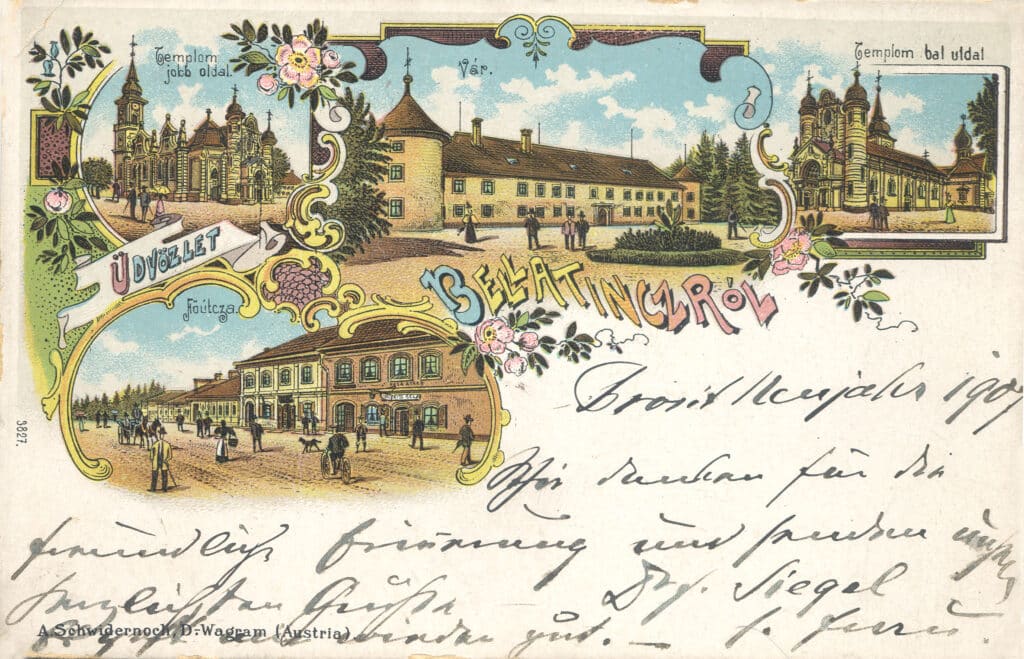 Templom
jobb oldal.
Vár.
Templom bal uldal
ÜDVÖZLET
BELLATINCZRÓL
Főútcza.
3827.
Prosit Neujahr 190
Wir danken für die
freundliche Erinnerung und senden unsere
herzlichsten Grüße Siegel
wieder gut. —
A. Schwidernoch, D.-Wagram (Austria).